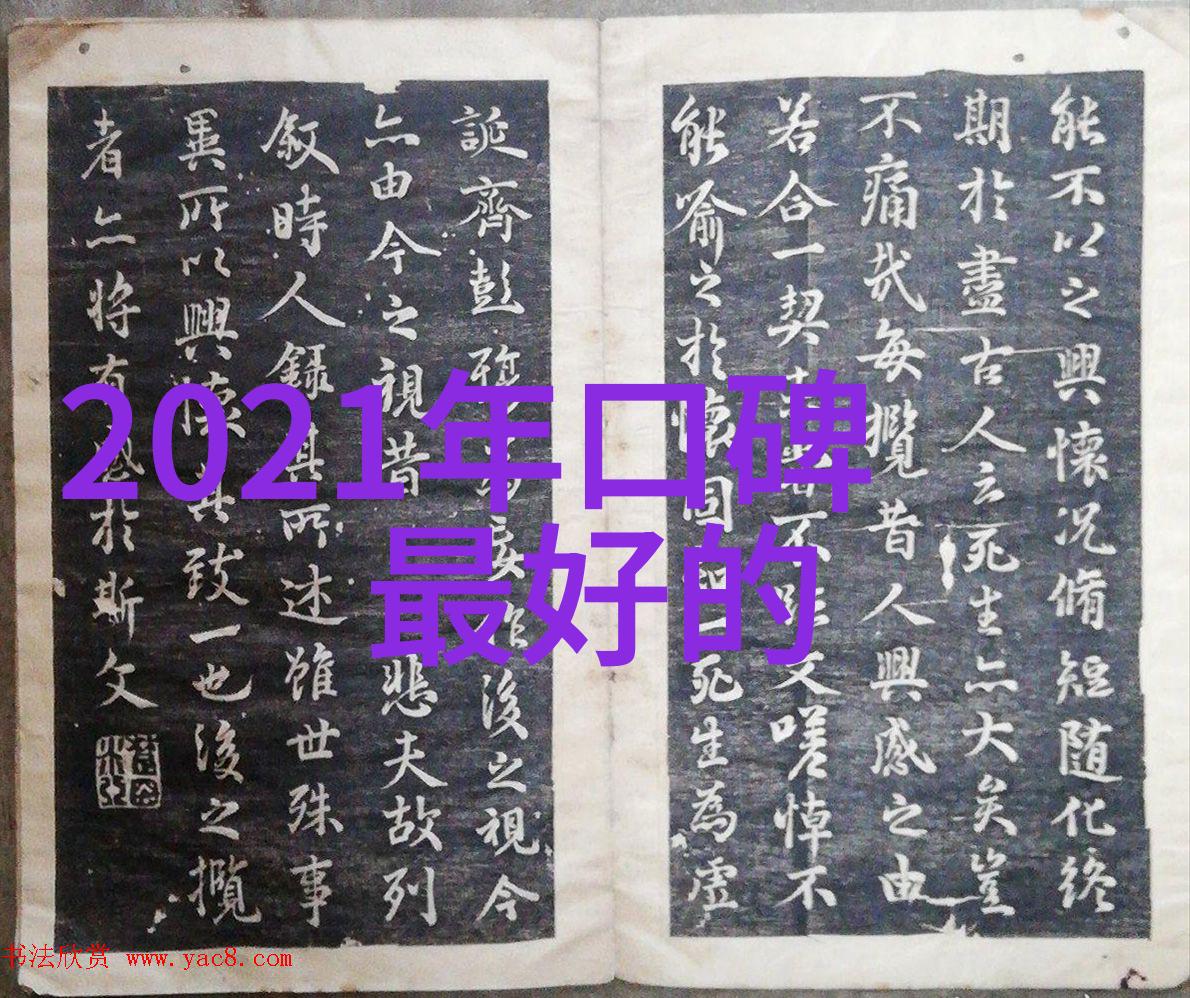 能不以之興懷況脩短隨化終
期於盡古人云死生亦大矣豈
不痛哉每攬昔人興感之由
若合一契不臨文嗟悼不
能喻之於懷固知一死生為虛
誕齊彭殤為妄作後之視今
亦由今之視昔悲夫故列
敘時人錄其所述雖世殊事
異所以興懷其致一也後之攬
者亦将有感於斯文
2021年口碑
最好的
书法欣赏 www.yac8.com